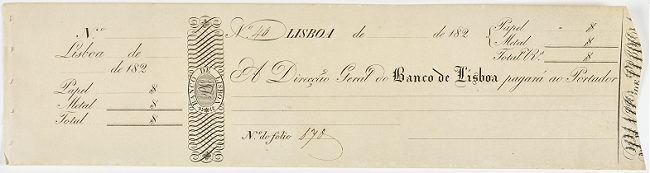 N.º
Lisboa de
de 182
Papel $
Metal $
Total $
BANCO DE LISBOA
N.º 44 LISBOA de de 182
Papel $
Metal $
Total R.s $
A Direcção Geral do Banco de Lisboa pagará ao Portador
N.º do folio 878